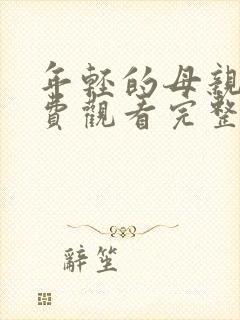 年輕的母親
費觀看完整
辭笙